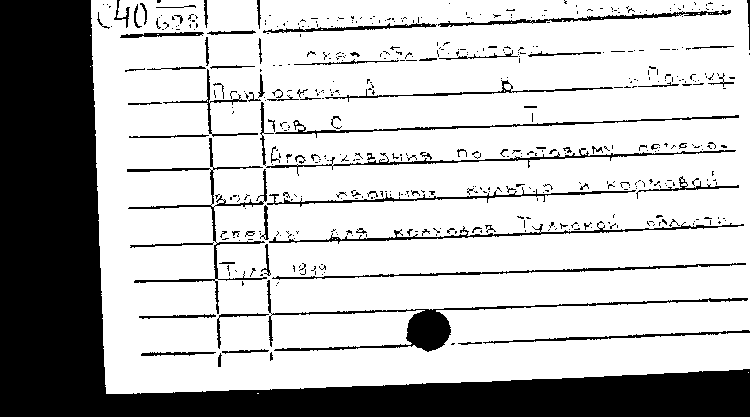 С40 698
ская обл. Контора
Приокский, А В и Пансу-
тов, С Т
Агроуказания по сортовому семено-
водству овощных культур и кормовой
свеклы для колхозов Тульской области
Тула, 1939